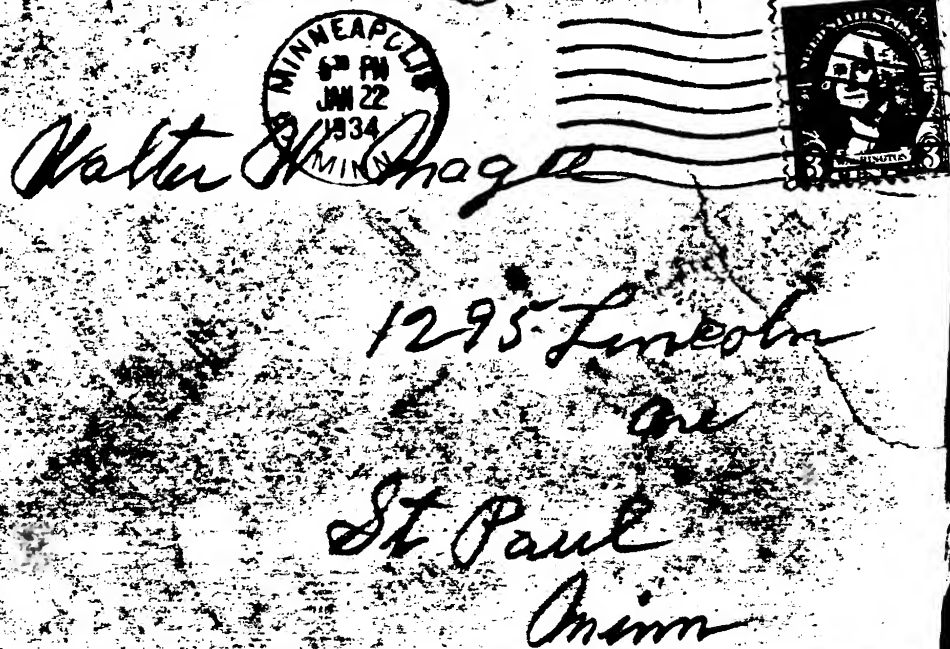 MINNEAPOLIS
6³⁰ PM
JAN 22
1934
MINN.
UNITED STATES POSTAGE
3 WASHINGTON 3
Walter W Magee
1295 Lincoln
Ave
St Paul
Minn